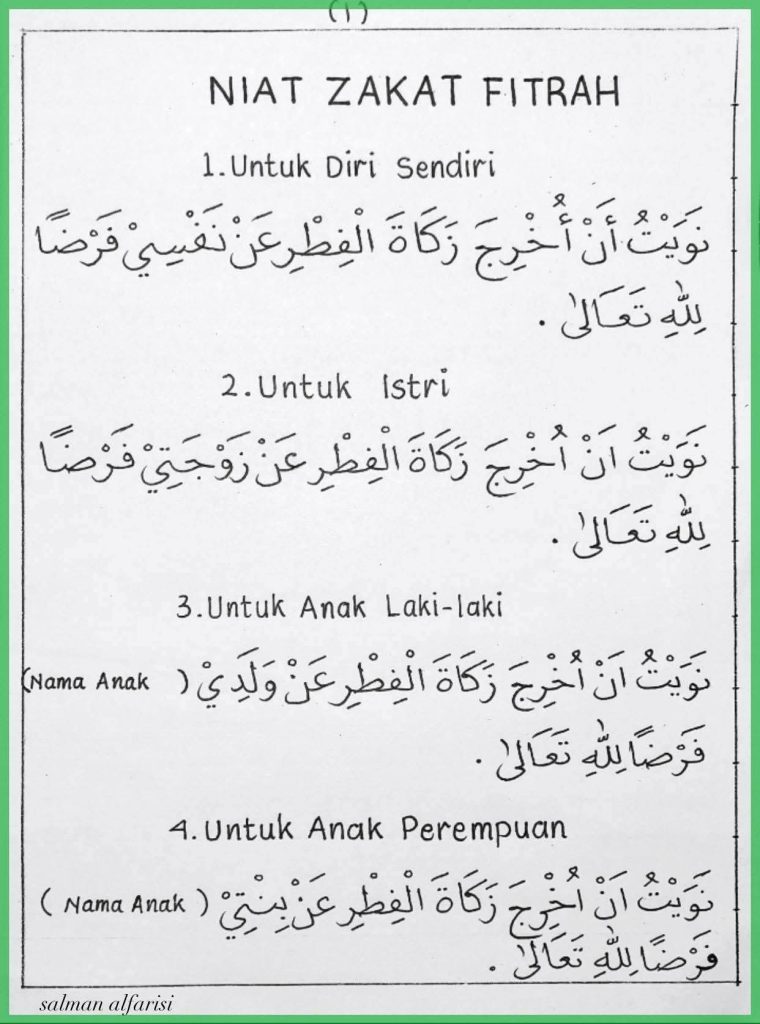 (١)
NIAT ZAKAT FITRAH
1. Untuk Diri Sendiri
نَوَيْتُ أَنْ أُخْرِجَ زَكَاةَ الْفِطْرِ عَنْ نَفْسِيْ فَرْضًا
لِلّٰهِ تَعَالىٰ .
2. Untuk Istri
نَوَيْتُ اَنْ اُخْرِجَ زَكَاةَ الْفِطْرِ عَنْ زَوْجَتِيْ فَرْضًا
لِلّٰهِ تَعَالىٰ .
3. Untuk Anak Laki-laki
نَوَيْتُ اَنْ اُخْرِجَ زَكَاةَ الْفِطْرِ عَنْ وَلَدِيْ (Nama Anak)
فَرْضًا لِلّٰهِ تَعَالىٰ .
4. Untuk Anak Perempuan
نَوَيْتُ اَنْ اُخْرِجَ زَكَاةَ الْفِطْرِ عَنْ بِنْتِيْ (Nama Anak)
فَرْضًا لِلّٰهِ تَعَالىٰ .
salman alfarisi